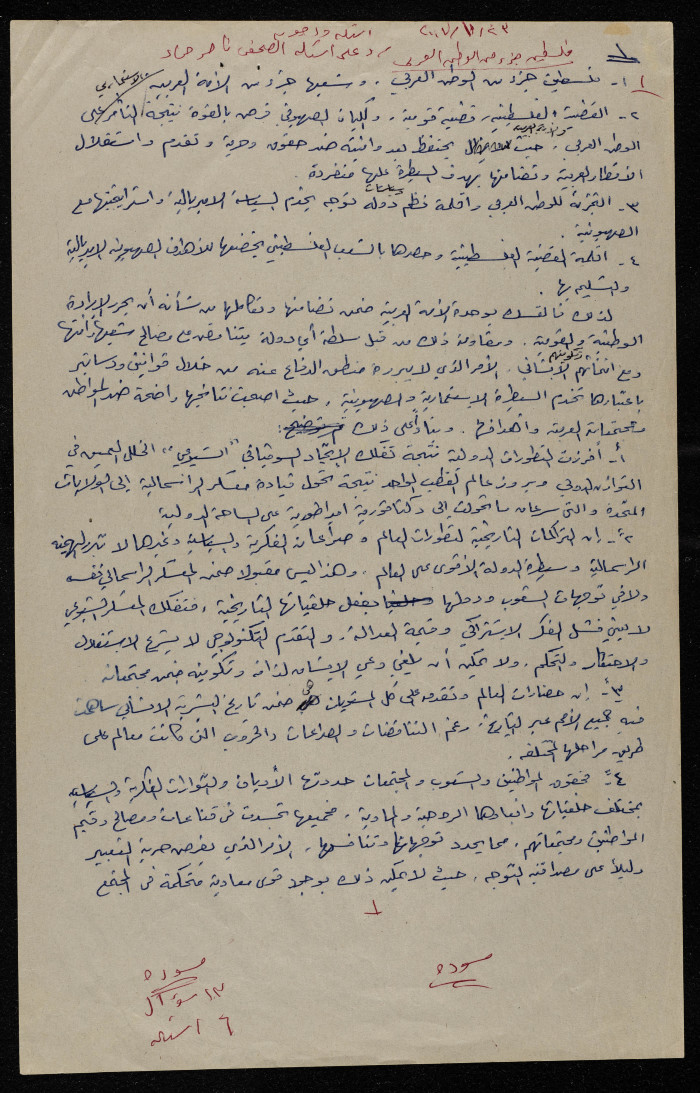 اسئله واجوبه
رد على اسئلة الصحفي ناصر حماد
فلسطين جزء من الوطن العربي
١
١- فلسطين جزء من الوطن العربي، وشعبها جزء من الأمة العربية
٢- القضية الفلسطينية، قضية قومية، والكيان الصهيوني فرض بالقوة نتيجة التآمر الاستعماري على
الوطن العربي، حيث يحتفظ بعدوانيته ضد حقوق وحرية وتقدم واستقلال
الأقطار العربية وتضامنها بهدف السيطرة عليها منفردة.
٣- التجزئة للوطن العربي واقلمة نظم دوله توجه يخدم السياسة الامبريالية واستراتيجيتها مع
الصهيونية.
٤- اقلمة القضية الفلسطينية وحصرها بالشعب الفلسطيني يخضعها للأهداف الصهيونية الامبريالية
والتسليم بها.
لذلك فالتمسك بوحدة الأمة العربية ضمن تضامنها وتكاملها من شأنه أن يحرر الإرادة
الوطنية والقومية. ومقاومة ذلك من قبل سلطة أي دولة يتناقض مع مصالح شعبها ذاتها
ومع انتمائهم وتكوينهم الإنساني. الأمر الذي لا يبرره منطق الدفاع عنه من خلال قوانين ودساتير
باعتبارها تخدم السيطرة الاستعمارية والصهيونية، حيث اصبحت نتائجها واضحة ضد المواطن
ومجتمعاته العربية وأهدافها. وبناء على ذلك
أ- أفرزت التطورات الدولية نتيجة تفكك الإتحاد السوفياتي "الشيوعي" الخلل المميت في
التوازن الدولي وبروز عالم القطب الواحد نتيجة تحول قيادة معسكر الرأسمالية إلى الولايات
المتحدة والتي سرعان ما تحولت إلى دكتاتورية امبراطورية على الساحة الدولية
٢- إن التراكمات التاريخية لتطورات العالم وصراعاته الفكرية والسياسية وغيرها لا تبرر الهيمنة
الرأسمالية وسيطرة الدولة الأقوى على العالم، وهذا ليس مقبولا ضمن المعسكر الرأسمالي نفسه
ولا في توجهات الشعوب ودولها بفعل خلفياتها التاريخية، فتفكك المعسكر الشيوعي
لا يعني فشل الفكر الاشتراكي وقيمة العدالة، والتقدم التكنولوجي لا يشرع الاستغلال
والاحتكار والتحكم. ولا يمكن أن يلغي وعي الإنسان لذاته وتكوينه ضمن مجتمعاته
٣- إن حضارات العالم وتقدمه على كل المستويات هي ضمن تاريخ البشرية الإنساني ساهمت
فيه جميع الأمم عبر التاريخ، رغم التناقضات والصراعات والحروب التي كانت معالم على
طريق مراحلها المختلفة.
٤- فحقوق المواطنين والشعوب والمجتمعات حددتها الأديان والثورات الفكرية والسياسية
بمختلف خلفياتها وابعادها الروحية والمادية، فجميعها تجسدت في قناعات ومصالح وقيم
المواطنين ومجتمعاتهم، مما يحدد توجهاتها وتنافسها، الأمر الذي يفرض حرية التعبير
دليلاً على مصداقية التوجه، حيث لا يمكن ذلك بوجود قوى معادية متحكمة في المجتمع
١
مسوده
مسوده
١٣ سؤال
٦ اسئلة